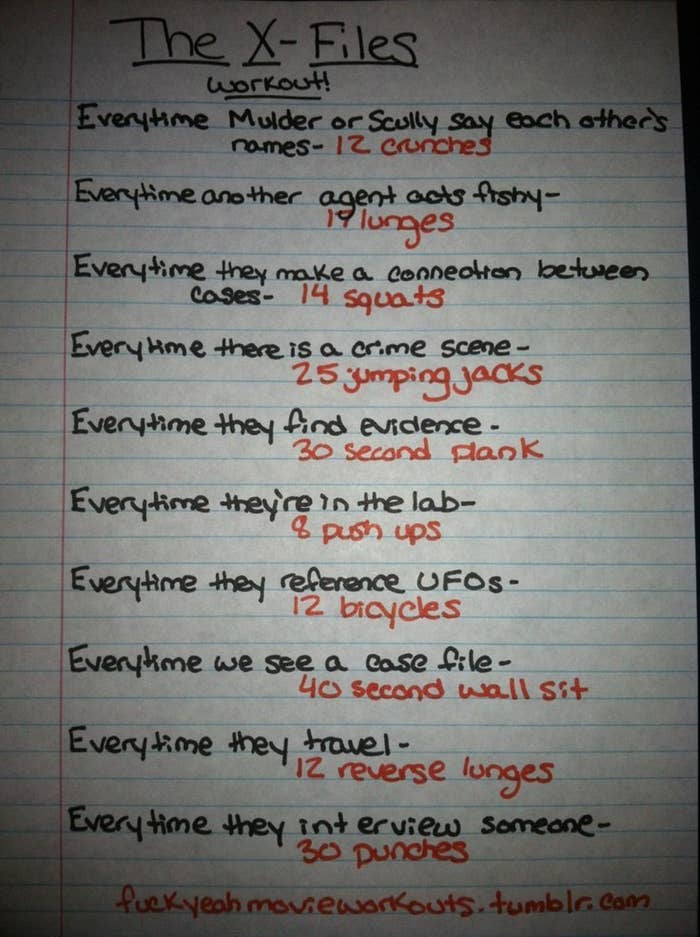 The X-Files
workout!
Everytime Mulder or Scully say each other's
names- 12 crunches
Everytime another agent acts fishy-
lunges
Everytime they make a connection between
cases- 14 squats
Everytime there is a crime scene-
25 jumping jacks
Everytime they find evidence-
30 second plank
Everytime they're in the lab-
8 push ups
Everytime they reference UFOs-
12 bicycles
Everytime we see a case file-
40 second wall sit
Everytime they travel-
12 reverse lunges
Everytime they interview someone-
30 punches
fuckyeahmovieworkouts.tumblr.com